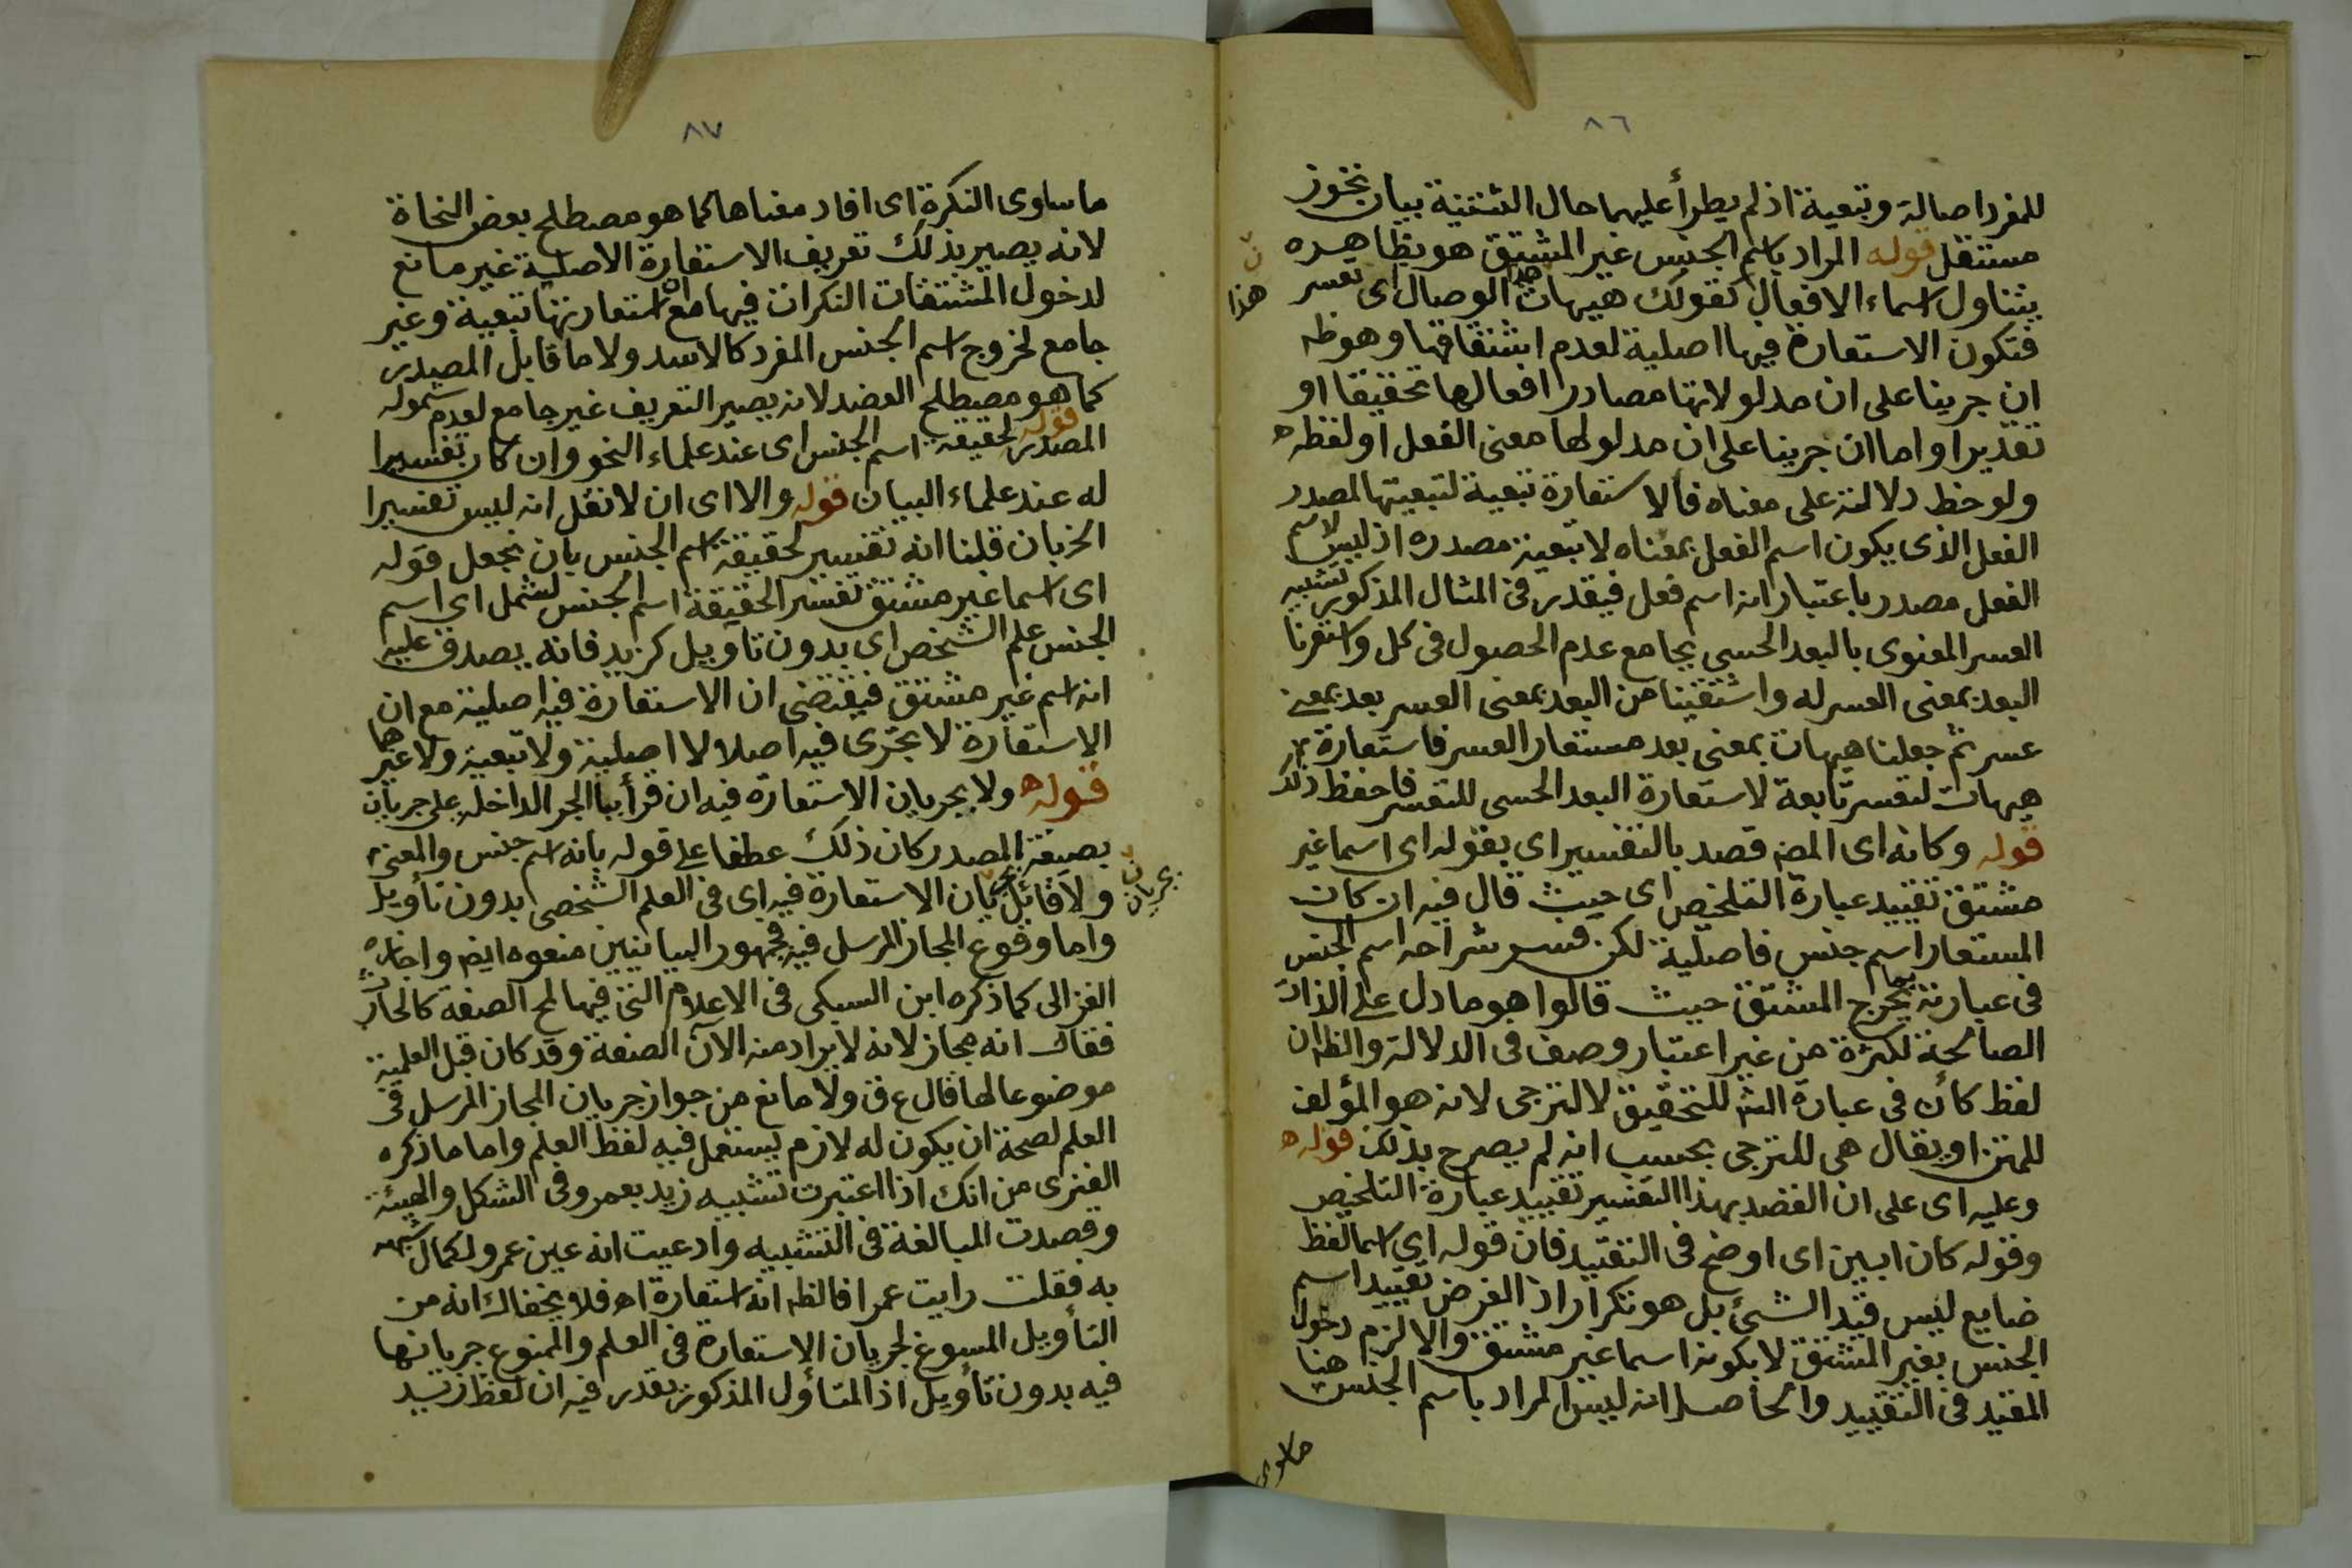 ٨٦
للمفرد اصالة وتبعية اذ لم يطرأ عليهما حال التثنية بيان تجوز
مستقل قوله المراد باسم الجنس غير المشتق هو بظاهره
يتناول اسماء الافعال كقولك هيهات هذا الوصال اى تعسر
هذا
فتكون الاستعارة فيها اصلية لعدم اشتقاقها وهو ظه
ان جرينا على ان مدلولاتها مصادر افعالها تحقيقا او
تقديرا واما ان جرينا على ان مدلولها معنى الفعل او لفظه
ولوحظ دلالته على معناه فالاستعارة تبعية لتبعيتها لمصدر
الفعل الذى يكون اسم الفعل بمعناه لا تبعية مصدره اذ ليس لاسم
الفعل مصدر باعتبار انه اسم فعل فيقدر فى المثال المذكور تشبيه
العسر المعنوى بالبعد الحسى بجامع عدم الحصول فى كل واستعرنا
البعد بمعنى العسر له واشتقينا من البعد بمعنى العسر بعد بمعنى
عسر ثم جعلنا هيهات بمعنى بعد مستعار العسر فاستعارة
هيهات لتعسر تابعة لاستعارة البعد الحسى للتعسر فاحفظ ذلك
قوله وكانه اى المصه قصد بالتفسير اى بقوله اى اسما غير
مشتق تقييد عبارة التلخيص اى حيث قال فيه ان كان
المستعار اسم جنس فاصلية لكن فسر شراحه اسم الجنس
فى عبارته بما يخرج المشتق حيث قالوا هو ما دل على الذات
الصالحة لكثرة من غير اعتبار وصف فى الدلالة والظه ان
لفظ كأن فى عبارة الشه للتحقيق لا للترجى لانه هو المؤلف
للمتن او يقال هى للترجى بحسب انه لم يصرح بذلك قوله
وعليه اى على ان القصد بهذا التفسير تقييد عبارة التلخيص
وقوله كان ابين اى اوضح فى التقييد فان قوله اى اسما لفظ
ضايع ليس قيد الشئ بل هو تكرار اذ الغرض تقييد اسم
الجنس بغير المشتق لا بكونه اسما غير مشتق والا لزم دخول
المقيد فى التقييد والحاصل انه ليس المراد باسم الجنس هنا
ما ساوى
٨٧
ما ساوى النكرة اى افاد معناها كما هو مصطلح بعض النحاة
لانه يصير بذلك تعريف الاستعارة الاصلية غير مانع
لدخول المشتقات النكرات فيها مع ان استعارتها تبعية وغير
جامع لخروج اسم الجنس المفرد كالاسد ولا ما قابل المصدر
كما هو مصطلح العضد لانه يصير التعريف غير جامع لعدم شموله
المصدر قوله لحقيقة اسم الجنس اى عند علماء النحو وان كان تفسيرا
له عند علماء البيان قوله والا اى ان لا نقل انه ليس تفسيرا
الخ بان قلنا انه تفسير لحقيقة اسم الجنس بان نجعل قوله
اى اسما غير مشتق تفسير الحقيقة اسم الجنس لشمل اى اسم
الجنس علم الشخص اى بدون تاويل كزيد فانه يصدق عليه
انه اسم غير مشتق فيقتضى ان الاستعارة فيه اصلية مع ان
الاستعارة لا تجرى فيه اصلا لا اصلية ولا تبعية ولا غيرهما
قوله ولا بجريان الاستعارة فيه ان قرأ بيا الجر الداخله على جريان
بصيغة المصدر كان ذلك عطفا على قوله بانه اسم جنس والمعنى
ولا قائل بجريان الاستعارة فيه اى فى العلم الشخصى بدون تأويل
بجريان
واما وقوع المجاز المرسل فيه فجمهور البيانيين منعوه ايضه واجازه
الغزالى كما ذكره ابن السبكى فى الاعلام التى فيها لمح الصفة كالحارث
فقال انه مجاز لانه لا يراد منه الآن الصفة وقد كان قبل العلمية
موضوعا لها قال ع ق ولا مانع من جواز جريان المجاز المرسل فى
العلم لصحة ان يكون له لازم يستعمل فيه لفظ العلم واما ما ذكره
الفنرى من انك اذا اعتبرت تشبيه زيد بعمرو فى الشكل والهيئة
وقصدت المبالغة فى التشبيه وادعيت انه عين عمرو لكمال شبهه
به فقلت رايت عمرا فالظه انه استعارة اه فلا يخفاك انه من
التأويل المسوغ لجريان الاستعارة فى العلم والممنوع جريانها
فيه بدون تأويل اذ المتأول المذكور يقدر فيه ان لفظ زيد